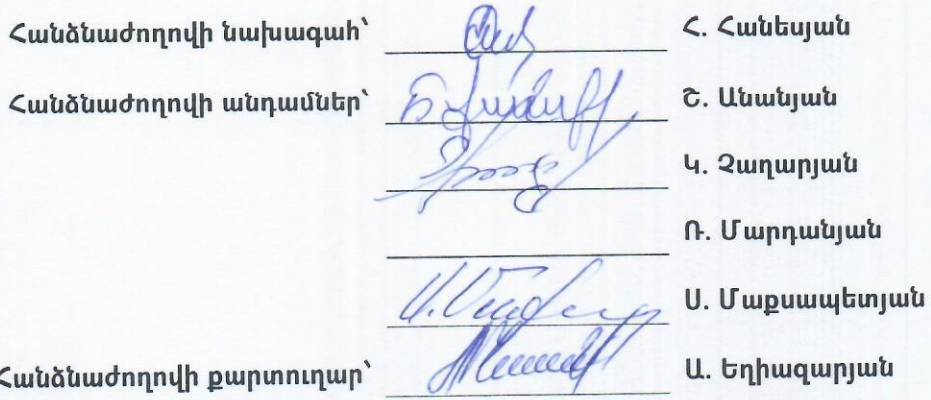 Հանձնաժողովի նախագահ՝ Հ. Հանեսյան
Հանձնաժողովի անդամներ՝ Շ. Անանյան
Կ. Չաղարյան
Ռ. Մարդանյան
Ս. Մաքսապետյան
Հանձնաժողովի քարտուղար՝ Ա. Եղիազարյան